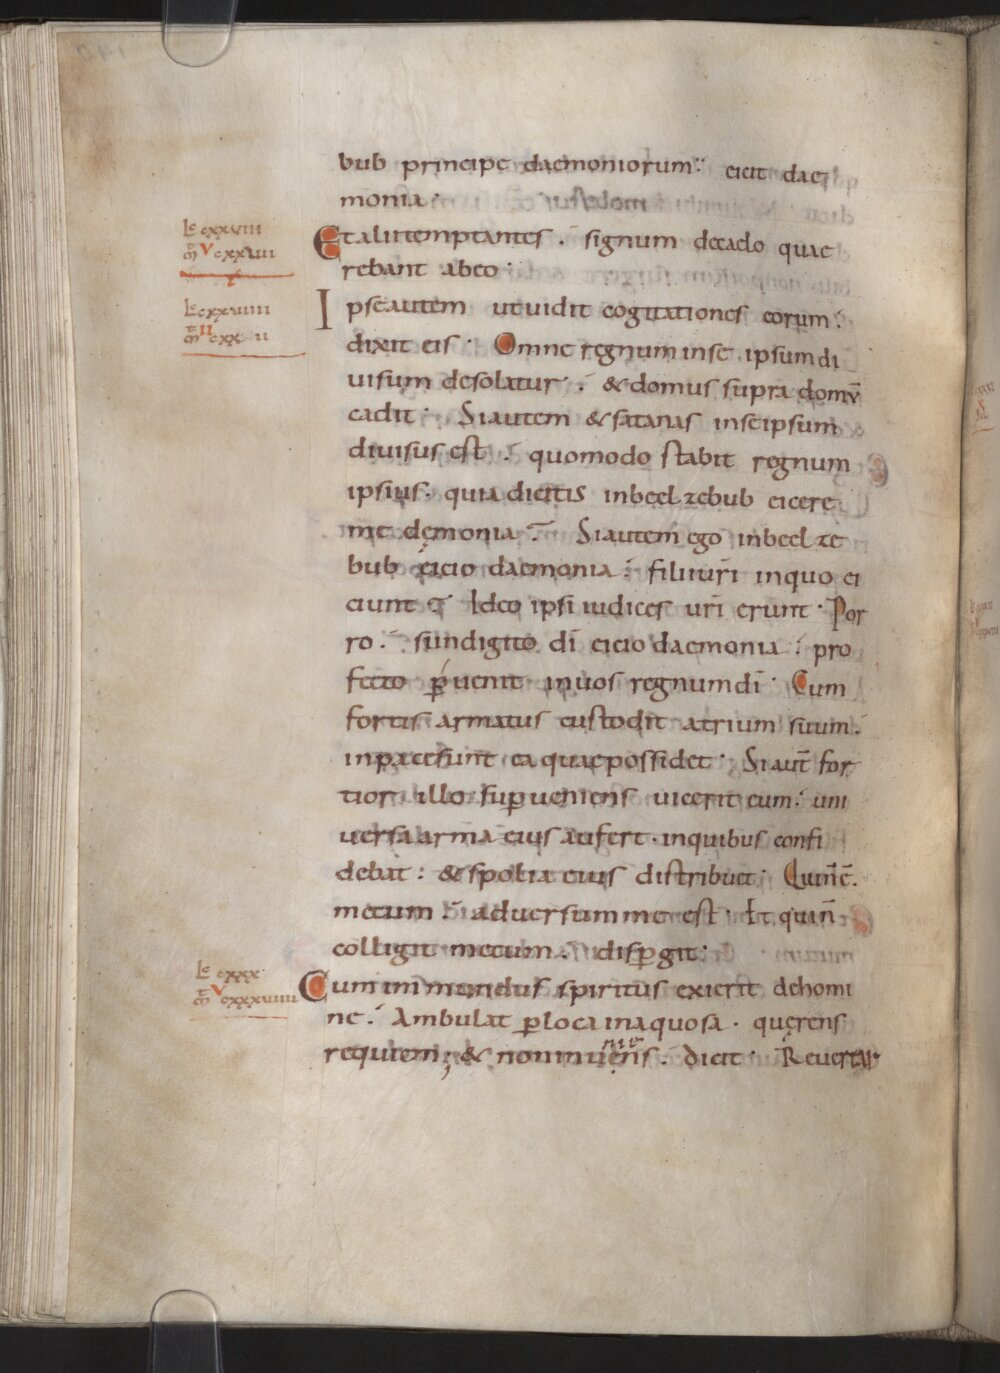 bub principe daemoniorum. eicit dae
monia.
Et alii temptantes. signum decaelo quae
rebant abeo.
Ipse autem ut vidit cogitationes eorum.
dixit eis. Omne regnum inse ipsum di
uisum desolatur. & domus supra domū
cadit. Si autem & satanas inseipsum
diuisus est. quomodo stabit regnum
ipsius. quia dicitis inbeelzebub eicere
me dęmonia. Si autem ego inbeelze
bub eicio daemonia. filii uri inquo ei
ciunt. Ideo ipsi iudices uri erunt. Por
ro. si indigito di eicio daemonia. pro
fecto puenit inuos regnum di. Cum
fortis armatus custodit atrium suum.
inpace sunt ea quae possidet. Si aut for
tior illo supueniens uicerit eum. uni
uersa arma eius aufert. inquibus confi
debat: & spolia eius distribuet. Qui n̄ ē
mecum. aduersum me est. Et qui n̄
colligit mecum. dispgit.
Cum immundus spiritus exierit dehomi
ne. Ambulat ploca inaquosa. quęrens
requiem; & non inueniens. dicit. Reuertar
le cxxviii
le cxxviiii
le cxxx